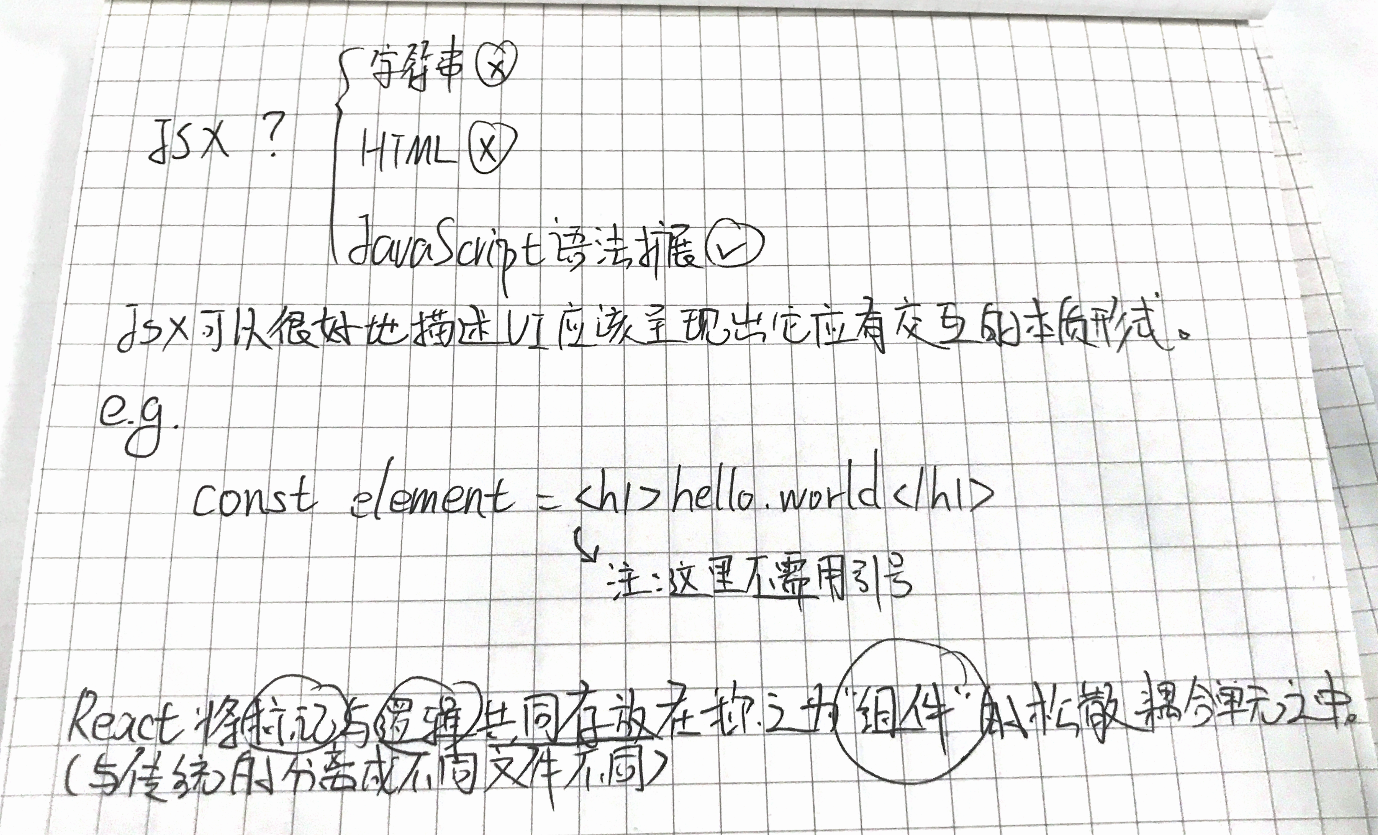 字符串 ⓧ
JSX ?
HTML ⓧ
JavaScript 语法扩展 ✓
JSX可以很好地描述UI应该呈现出它应有交互的本质形式。
e.g.
const element = <h1>hello.world</h1>
注:这里不需用引号
React 将标记与逻辑共同存放在称之为"组件"的松散耦合单元之中。
(与传统的分离成不同文件不同)